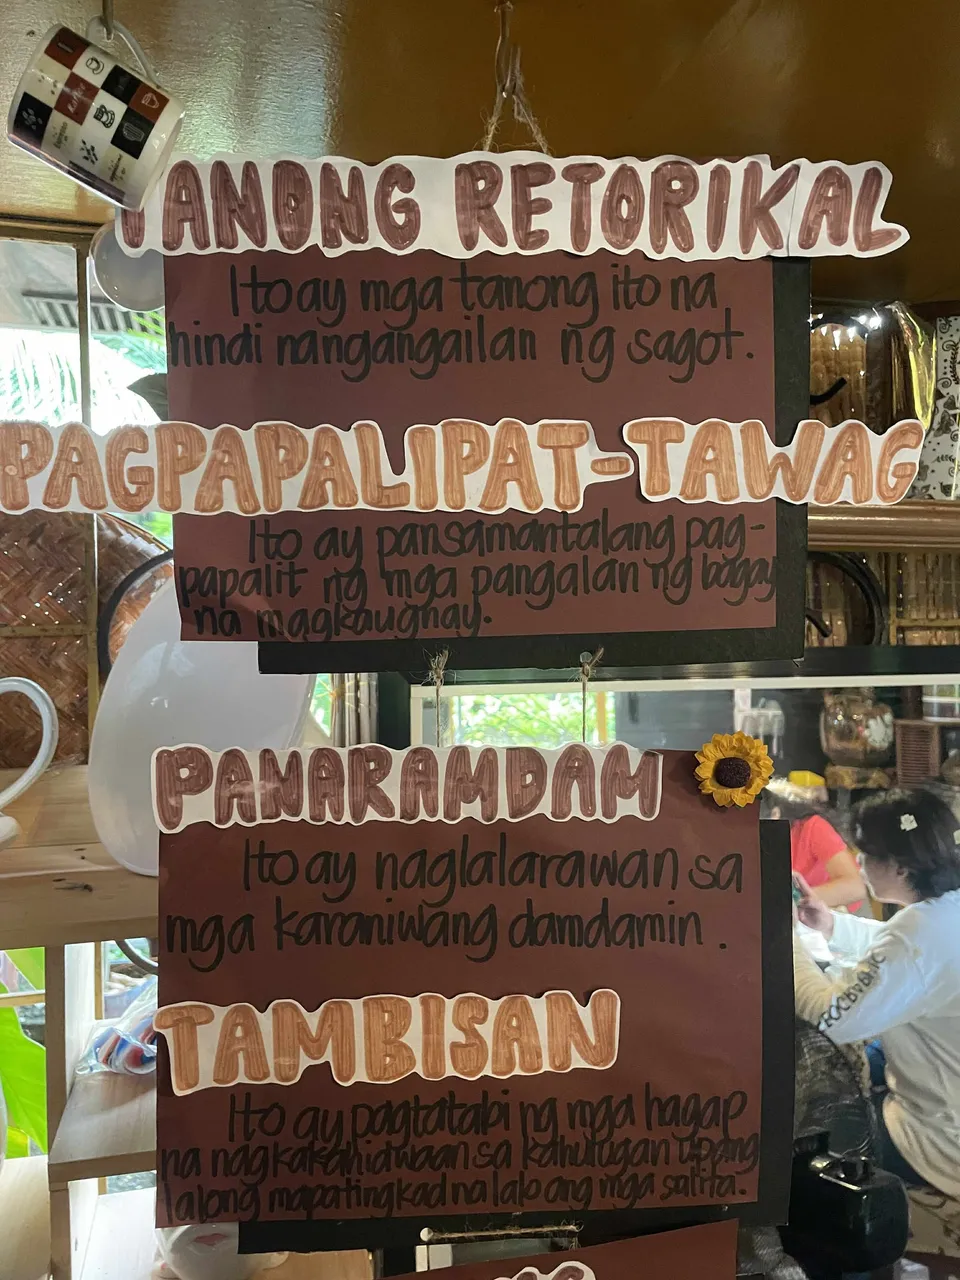 TANONG RETORIKAL
Ito ay mga tanong ito na
hindi nangangailan ng sagot.
PAGPAPALIPAT-TAWAG
Ito ay pansamantalang pag-
papalit ng mga pangalan ng bagay
na magkaugnay.
PANARAMDAM
Ito ay naglalarawan sa
mga karaniwang damdamin.
TAMBISAN
Ito ay pagtatabi ng mga hagap
na nagkakahidwaan sa kahulugan upang
lalong mapatingkad na lalo ang mga salita.